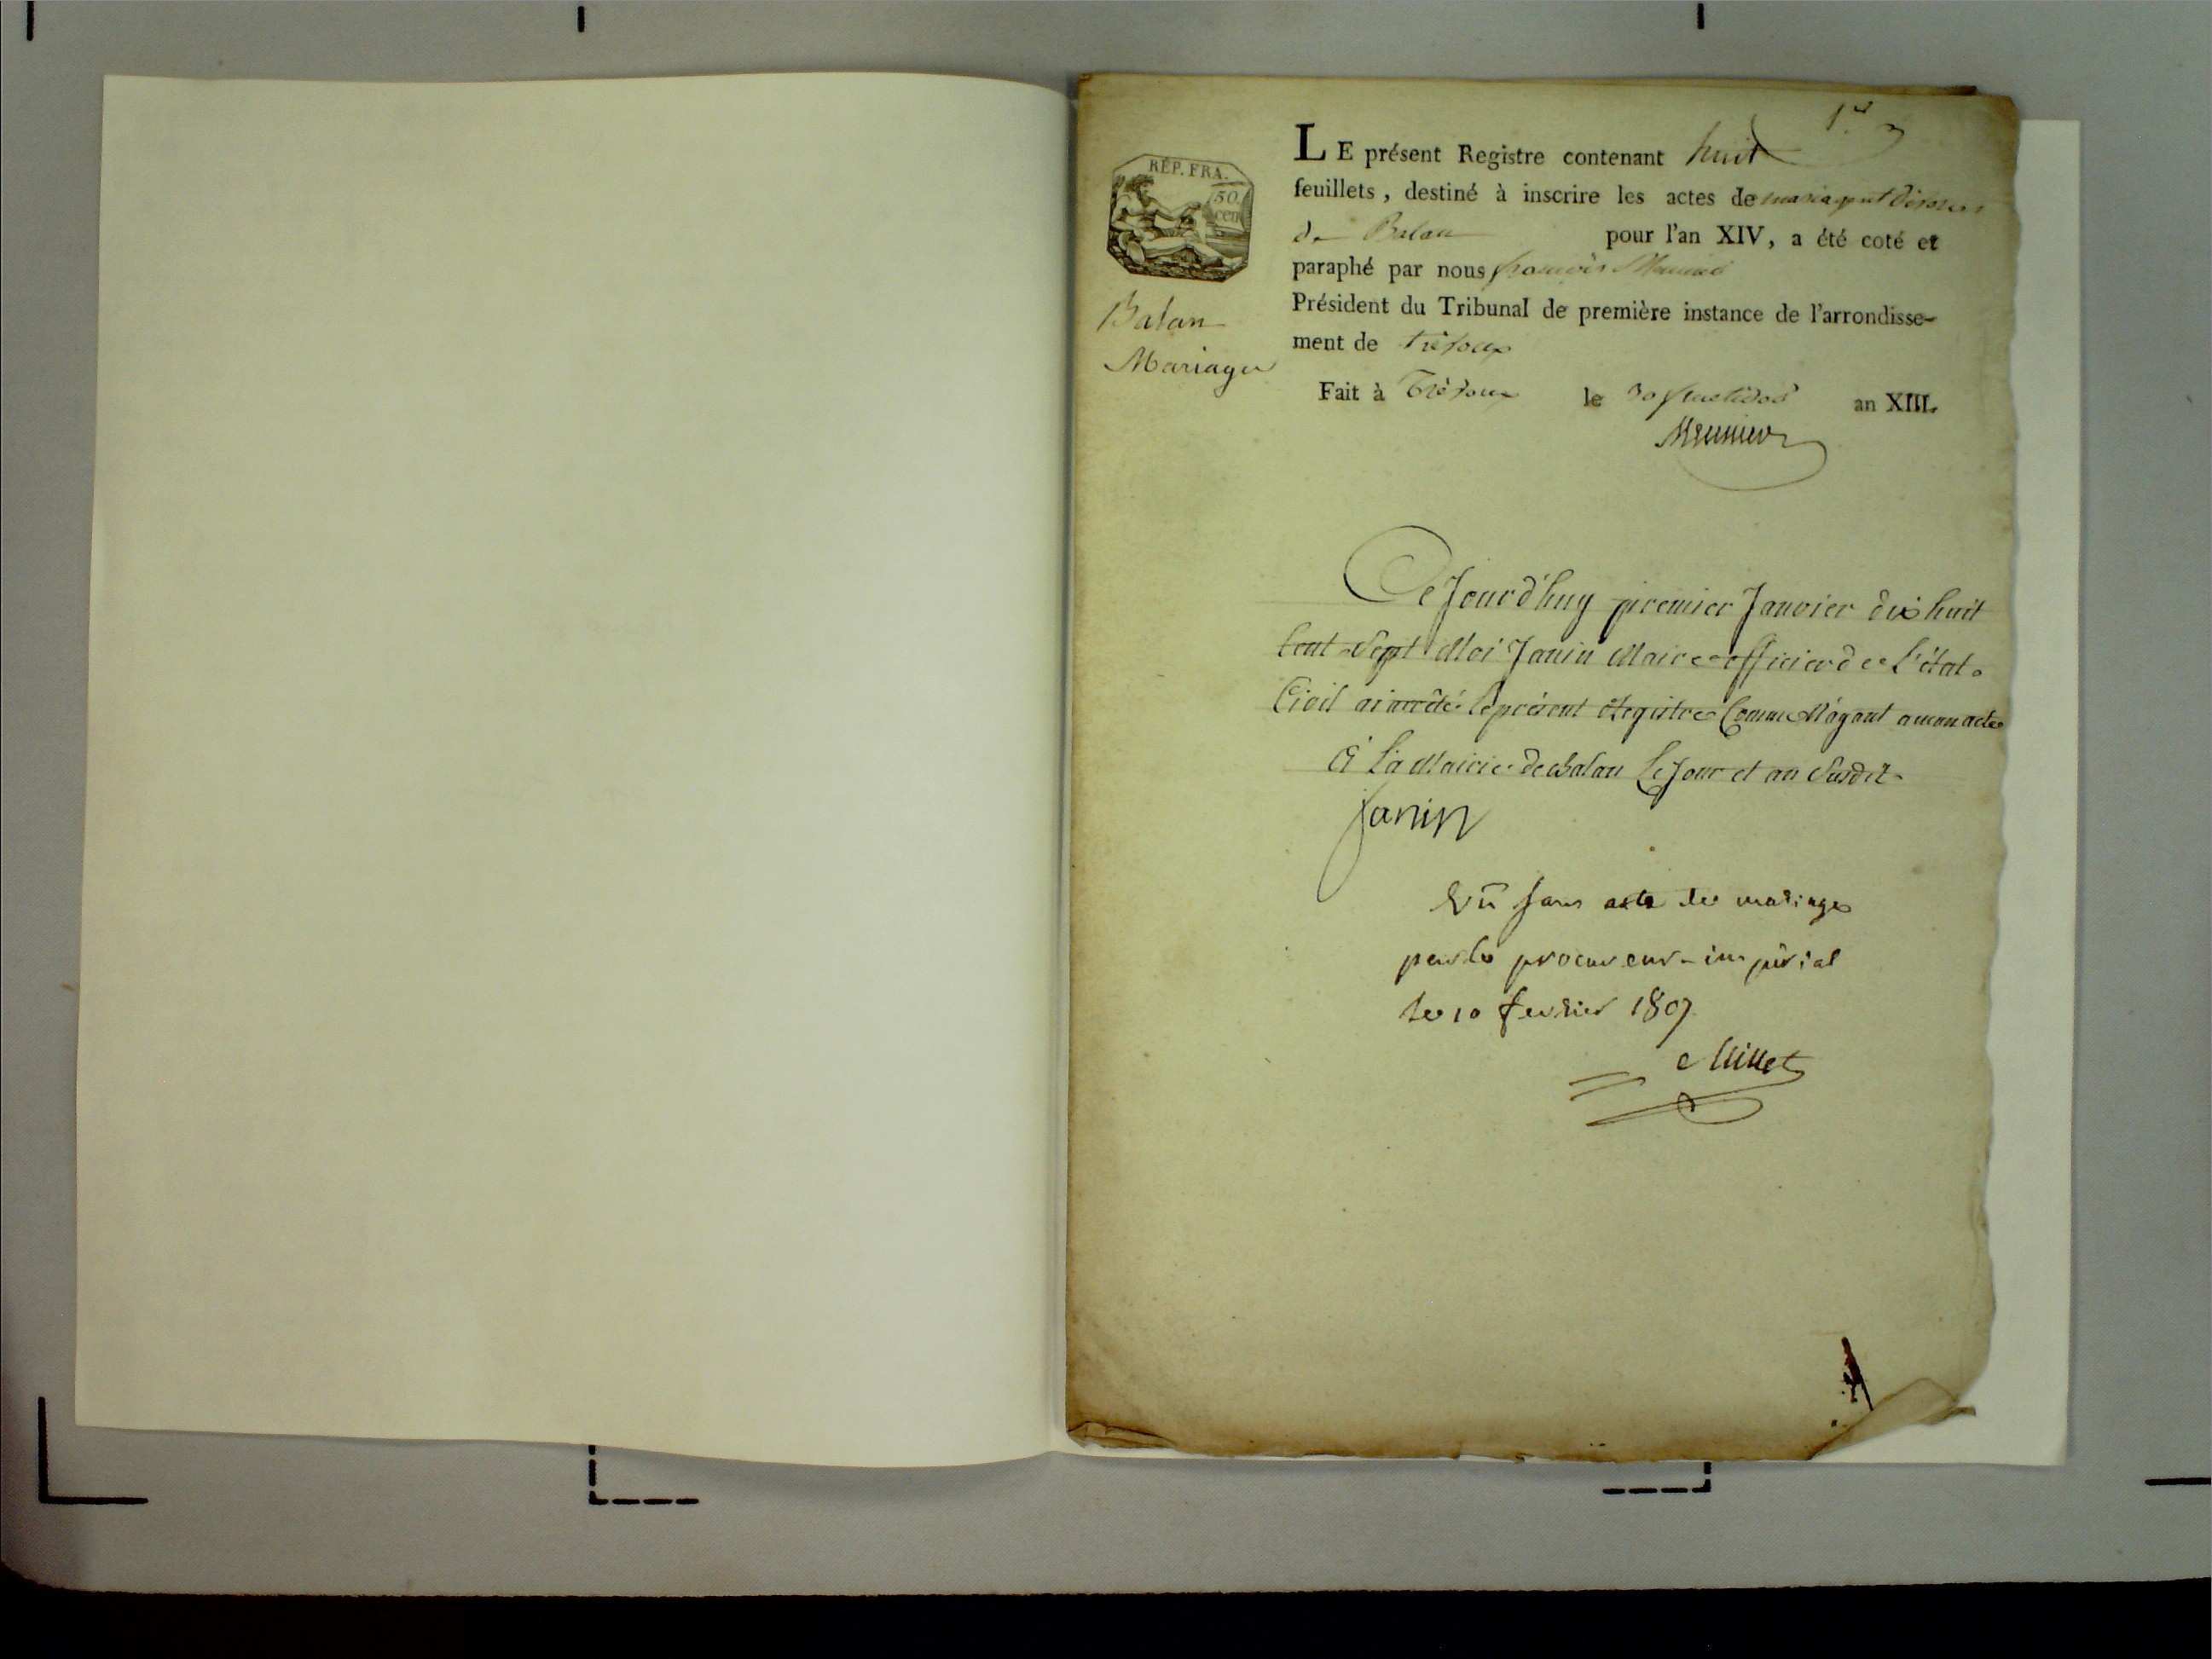 1er
RÉP. FRA.
50
cen
Balan
Mariages
LE présent Registre contenant huit
feuillets, destiné à inscrire les actes de mariage et divorces
de Balan pour l'an XIV, a été coté et
paraphé par nous françois Meunier
Président du Tribunal de première instance de l'arrondisse-
ment de trévoux
Fait à Trévoux le 30 fructidor an XIII.
Meunier
Ce Jourd'huy premier Janvier dix huit
Cent Sept Moi Janin Maire officier de L'état
Civil ai arrêté le présent Registre Comme N'ayant aucun acte
à La Mairie de Balan Le Jour et an Susdit
Janin
Vû sans acte de mariage
par le procureur impérial
le 10 fevrier 1807
Millet